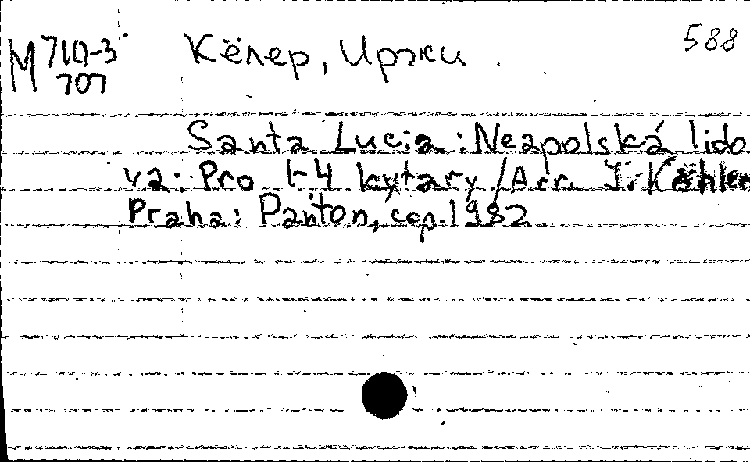 588
М 710-3 Кёлер, Иржи.
707
Santa Lucia: Neapolská lido
va: Pro 1-4 kytary/Arr. J. Köhler
Praha: Panton, cop. 1982